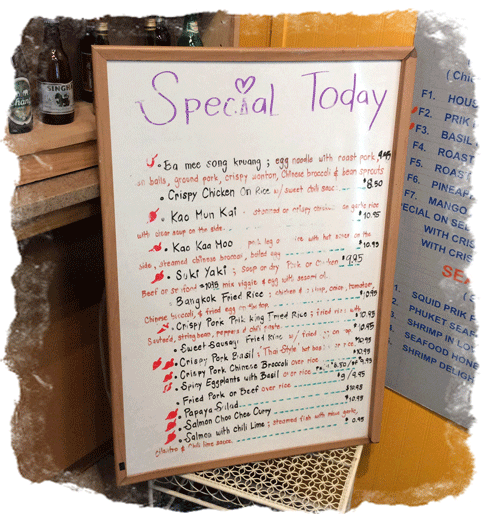 Special Today
Ba mee song kruang ; egg noodle with roast pork,
balls, ground pork, crispy wonton, Chinese broccoli & bean sprouts
Crispy Chicken On Rice w/ sweet chili sauce $8.50
Kao Mun Kai - steamed or crispy on garlic rice
with clear soup on the side $10.95
Kao Kaa Moo leg rice with hot on the
side, steamed chinese broccoli, boiled egg $10.95
Suki Yaki ; Soup or dry Pork or Chicken $9.95
Beef or seafood mix veggie & egg with
Bangkok Fried Rice ; chicken & shrimp, onion, tomato,
Chinese broccoli, & fried egg on the top $10.95
Crispy Pork Prik king Fried Rice ; fried rice with
string bean, peppers & chili paste $10.95
Sweet Sausage Fried Rice w/ fried on top
Crispy Pork Basil ; "Thai Style" hot over rice $10.95
Crispy Pork Chinese Broccoli over rice
Spicy Eggplants with Basil over rice
Fried Pork or Beef over rice $9/9.95
Papaya Salad
Salmon Choo Chee Curry $10.95
Salmon with Chili Lime ; steamed fish with garlic,
cilantro & chili lime sauce
SINGHA
F1. HOUS
F2. PRIK
F3. BASIL
F4. ROAST
F5. ROAST
F6. PINEAP
F7. MANGO
SPECIAL ON SE
WITH CRIS
WITH CRIS
SEA
SQUID PRIK
PHUKET SEAF
SHRIMP IN LO
SEAFOOD HONE
SHRIMP DELIGH